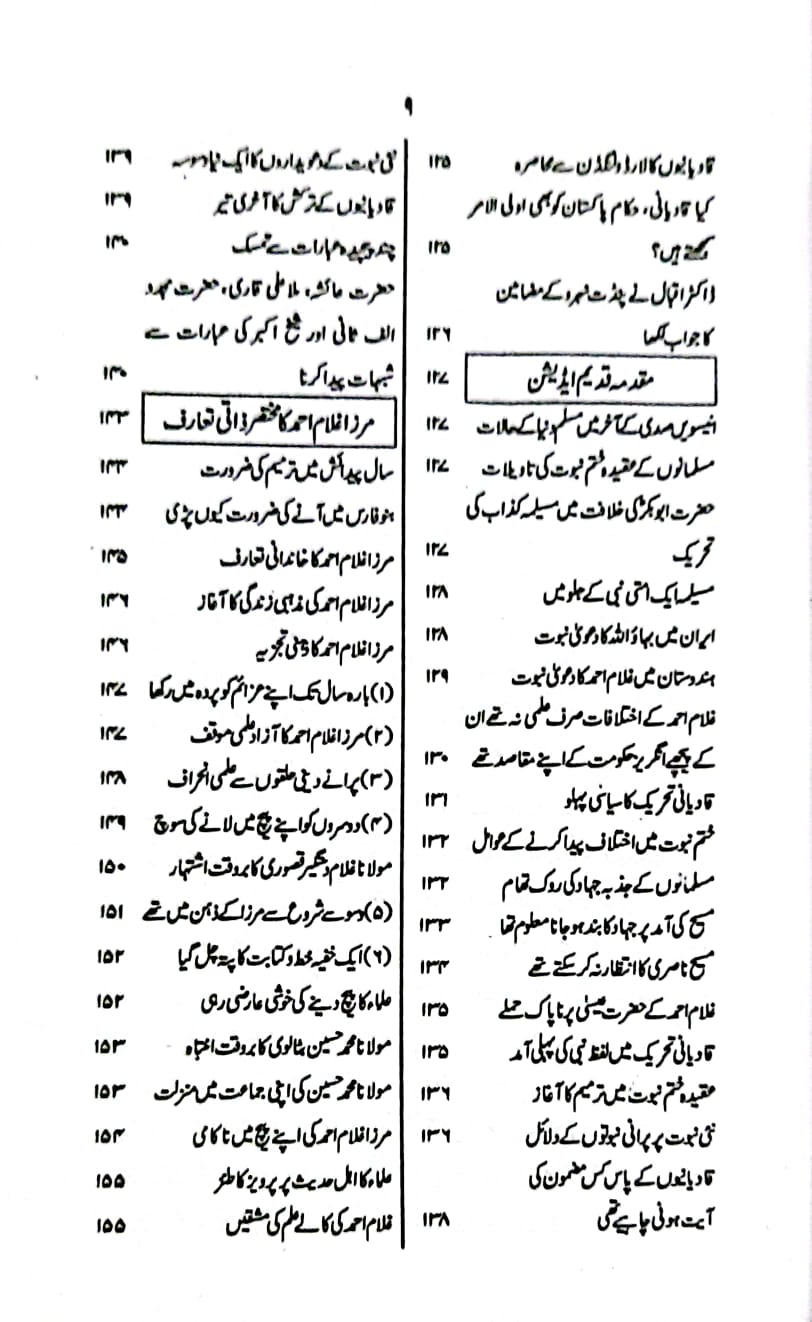 ۹
قادیانیوں کا لارڈ ولنگڈن سے محاصرہ ۱۲۵
کیا قادیانی، حکام پاکستان کو بھی اولی الامر
سمجھتے ہیں؟ ۱۲۵
ڈاکٹر اقبال نے پنڈت نہرو کے مضامین
کا جواب لکھا ۱۲۶
مقدمہ قدیم ایڈیشن ۱۲۷
انیسویں صدی کے آخر میں مسلم دنیا کے حالات ۱۲۷
مسلمانوں کے عقیدہ ختم نبوت کی تاویلات ۱۲۷
حضرت ابوبکرؓ کی خلافت میں مسیلمہ کذاب کی
تحریک ۱۲۷
مسیلمہ ایک امتی نبی کے جلو میں ۱۲۸
ایران میں بہاؤ اللہ کا دعویٰ نبوت ۱۲۸
ہندوستان میں غلام احمد کا دعویٰ نبوت ۱۲۹
غلام احمد کے اختلافات صرف علمی نہ تھے ان
کے پیچھے انگریز حکومت کے اپنے مقاصد تھے ۱۳۰
قادیانی تحریک کا سیاسی پہلو ۱۳۱
ختم نبوت میں اختلاف پیدا کرنے کے عوامل ۱۳۲
مسلمانوں کے جذبہ جہاد کی روک تھام ۱۳۲
مسیح کی آمد پر جہاد کا بند ہو جانا معلوم تھا ۱۳۳
مسیح ناصری کا انتظار نہ کر سکتے تھے ۱۳۴
غلام احمد کے حضرت عیسیٰ پر ناپاک حملے ۱۳۵
قادیانی تحریک میں لفظ نبی کی پہلی آمد ۱۳۵
عقیدہ ختم نبوت میں ترمیم کا آغاز ۱۳۶
نئی نبوت پر پرانی نبوتوں کے دلائل ۱۳۶
قادیانیوں کے پاس کس مضمون کی
آیت ہونی چاہیے تھی ۱۳۸
نئی نبوت کے دعویداروں کا ایک نیا وسوسہ ۱۳۹
قادیانیوں کے ترکش کا آخری تیر ۱۳۹
چند پیچیدہ عبارات سے تمسک ۱۴۰
حضرت عائشہ، ملا علی قاری، حضرت مجدد
الف ثانی اور شیخ اکبر کی عبارات سے
شبہات پیدا کرنا ۱۴۰
مرزا غلام احمد کا مختصر ذاتی تعارف ۱۴۳
سال پیدائش میں ترمیم کی ضرورت ۱۴۴
بنو فارس میں آنے کی ضرورت کیوں پڑی ۱۴۴
مرزا غلام احمد کا خاندانی تعارف ۱۴۵
مرزا غلام احمد کی مذہبی زندگی کا آغاز ۱۴۶
مرزا غلام احمد کا ذہنی تجزیہ ۱۴۶
(۱) بارہ سال تک اپنے عزائم کو پردہ میں رکھا ۱۴۷
(۲) مرزا غلام احمد کا آزاد علمی موقف ۱۴۷
(۳) پرانے دینی حلقوں سے علمی انحراف ۱۴۸
(۴) دوسروں کو اپنے پیچ میں لانے کی سوچ ۱۴۹
مولانا غلام دستگیر قصوری کا بروقت اشتہار ۱۵۰
(۵) دعوے شروع سے مرزا کے ذہن میں تھے ۱۵۱
(۶) ایک خفیہ خط و کتابت کا پتہ چل گیا ۱۵۲
علماء کا پیچ دینے کی خوشی عارضی رہی ۱۵۲
مولانا محمد حسین بٹالوی کا بروقت انتباہ ۱۵۳
مولانا محمد حسین کی اپنی جماعت میں منزلت ۱۵۳
مرزا غلام احمد کی اپنے پیچ میں ناکامی ۱۵۴
علماء کا اہل حدیث پر پرویز کا طنز ۱۵۵
غلام احمد کی کالے علم کی مشقیں ۱۵۵